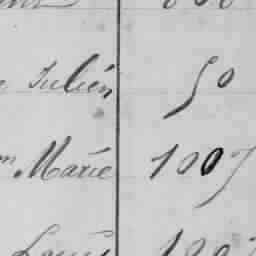 Julien 50
m Marie 1007
Louis